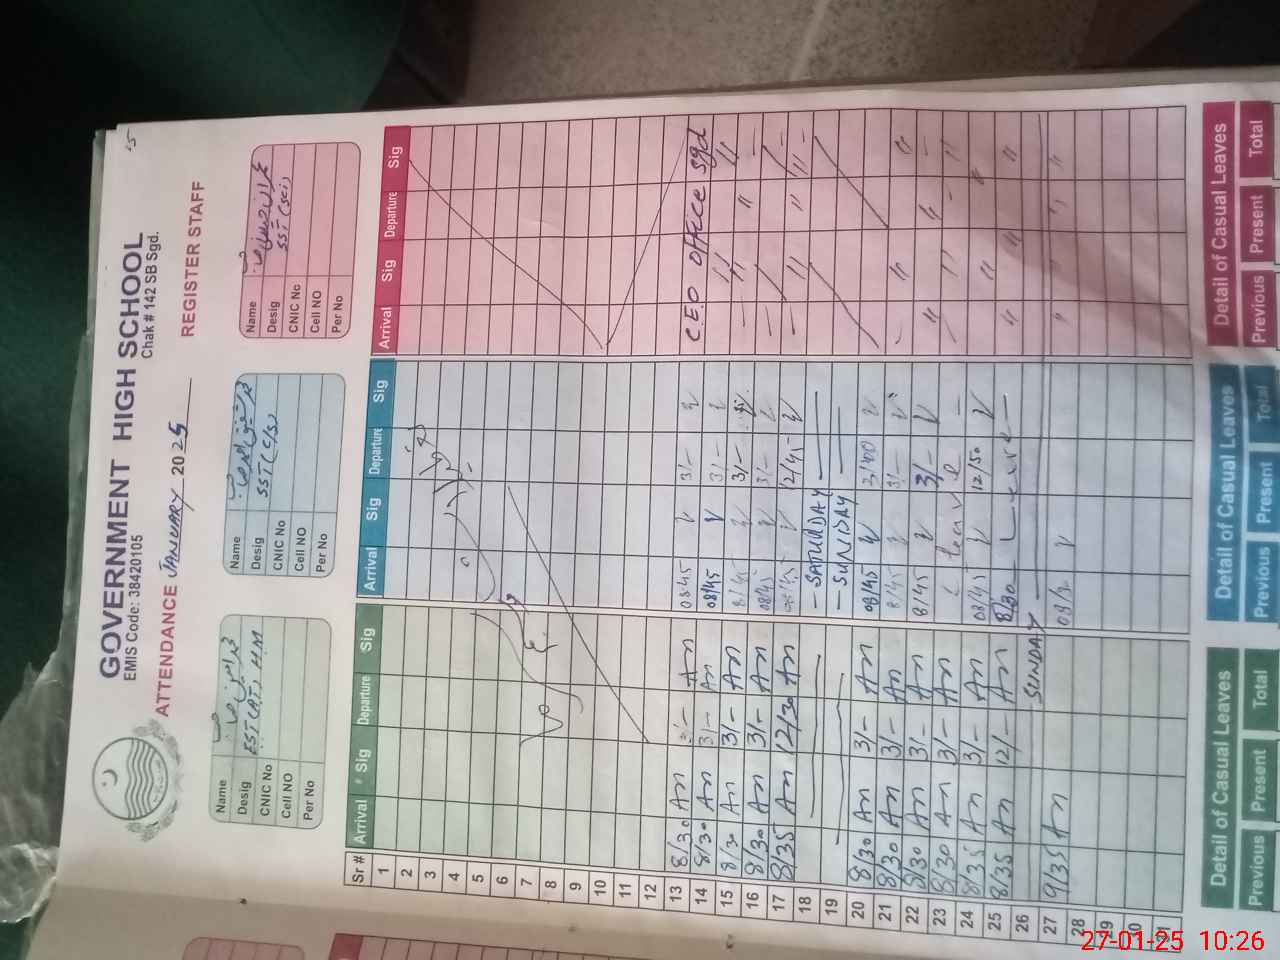 GOVERNMENT HIGH SCHOOL
EMIS Code: 38420105 Chak # 142 SB Sgd.
ATTENDANCE JANUARY 2025 REGISTER STAFF
Name
Desig SST(AT), H.M
CNIC No
Cell NO
Per No
Name
Desig SST (C/S)
CNIC No
Cell NO
Per No
Name
Desig SST (Sci)
CNIC No
Cell NO
Per No
Sr # Arrival Sig Departure Sig Arrival Sig Departure Sig Arrival Sig Departure Sig
1
2
3
4
5
6
7
8
9
10
11
12
13 8/30 An 3/– An 08:45 3/– C.E.O office sgd
14 8/30 An 3/– An 08/45 3/– " "
15 8/30 An 3/– An 8/45 3/– " "
16 8/30 An 3/– An 08/45 3/–
17 8/35 An 12/30 An 12/45 " " "
18 – SATURDAY –
19 – SUNDAY –
20 8/30 An 3/– An 08/45 3/00
21 8/30 An 3/– An 8/45 3/– " "
22 8/30 An 3/– An 8/45 3/– " "
23 8/30 An 3/– An Leave " "
24 8/35 An 3/– An 08/45 12/50 " "
25 8/35 An 12/– An 8/30 Leave " " "
26 SUNDAY
27 9/35 An 09/30 " " "
28
29
30
31
Detail of Casual Leaves
Previous Present Total
Detail of Casual Leaves
Previous Present Total
Detail of Casual Leaves
Previous Present Total
27-01-25 10:26